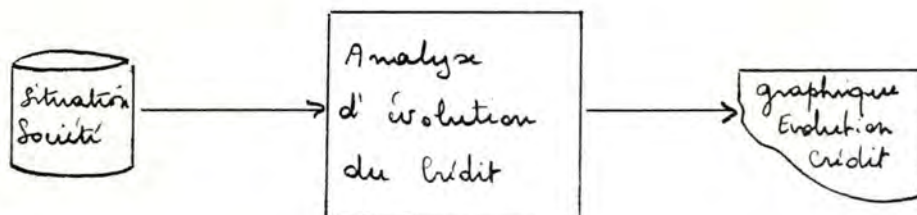 Situation
Société
Analyse
d'évolution
du Crédit
graphique
Evolution
Crédit